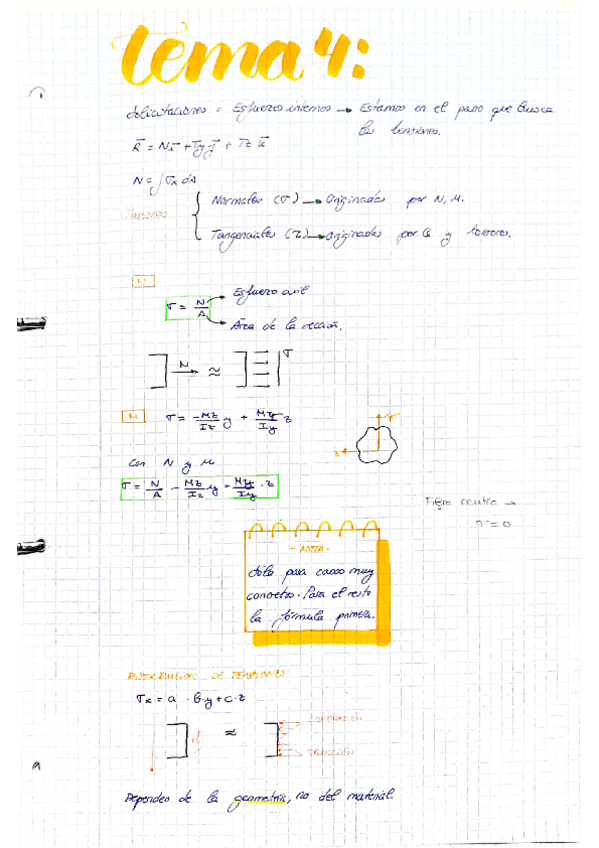 tema 4:
Solicitaciones = Esfuerzos internos → Estamos en el paso que busca
las tensiones.
R⃗ = N i⃗ + Ty j⃗ + Tz k⃗
N = ∫ σx dA
Tensiones { Normales (σ) → Originadas por N, M.
Tangenciales (τ) → Originadas por Q y torsores.
N
σ = N/A → Esfuerzo axil
→ Área de la sección.
N ≈ σ
M σ = - Mz/Iz y + My/Iy z
z
Con N y M
σ = N/A - Mz/Iz y + My/Iy · z
Fibra neutra →
σ = 0
- NOTA -
Sólo para casos muy
concretos. Para el resto
la fórmula primera.
DISTRIBUCIÓN DE TENSIONES
σx = a + b·y + c·z
≈
COMPRESIÓN
TRACCIÓN
Dependen de la geometría, no del material.